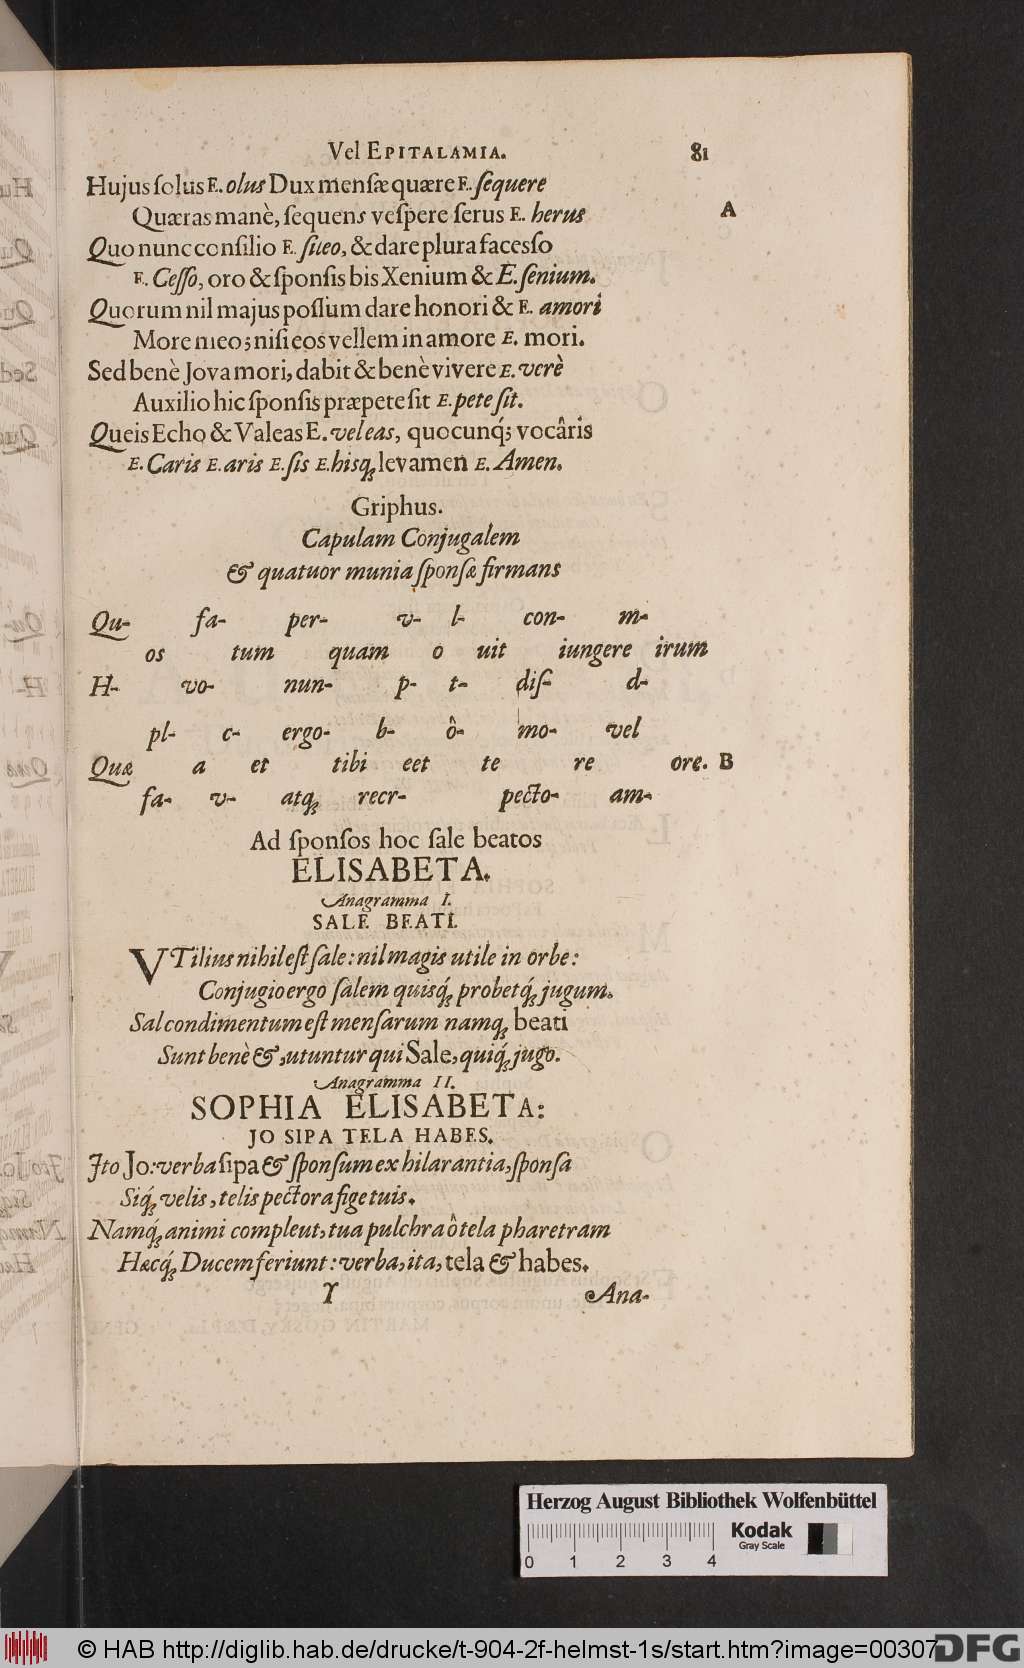 Vel EPITALAMIA. 81
Hujus ſolus E. olus Dux menſæ quære E. ſequere
Quæras manè, ſequens veſpere ſerus E. herus A
Quo nunc conſilio E. ſileo, & dare plura faceſſo
E. Ceſſo, oro & ſponſis bis Xenium & E. ſenium.
Quorum nil majus poſſum dare honori & E. amori
More meo; niſi eos vellem in amore E. mori.
Sed benè Jova mori, dabit & benè vivere E. verè
Auxilio hic ſponſis præpete ſit E. pete ſit.
Queis Echo & Valeas E. veleas, quocunq́; vocâris
E. Caris E. aris E. ſis E. hisq; levamen E. Amen.
Griphus.
Capulam Conjugalem
& quatuor munia ſponſæ firmans
Qu- fa- per- v- l- con- m-
os tum quam o uit iungere irum
H- vo- nun- p- t- diſ- d-
pl- c- ergo- b- ô- mo- vel
Quæ a et tibi eet te re ore. B
fa- v- atq; recr- pecto- am-
Ad ſponſos hoc ſale beatos
ELISABETA.
Anagramma I.
SALE BEATI.
VTilius nihil eſt ſale: nil magis utile in orbe:
Conjugio ergo ſalem quisq́; probetq́; jugum.
Sal condimentum eſt menſarum namq; beati
Sunt benè &, utuntur qui Sale, quiq́; jugo.
Anagramma II.
SOPHIA ELISABETA:
JO SIPA TELA HABES.
Ito Jo: verba ſipa & ſponſum exhilarantia, ſponſa
Siq́; velis, telis pectora fige tuis.
Namq́; animi compleut, tua pulchra ô tela pharetram
Hæcq́; Ducem feriunt: verba, ita, tela & habes.
Y Ana-
Herzog August Bibliothek Wolfenbüttel
Kodak
Gray Scale
0 1 2 3 4
© HAB http://diglib.hab.de/drucke/t-904-2f-helmst-1s/start.htm?image=00307
DFG